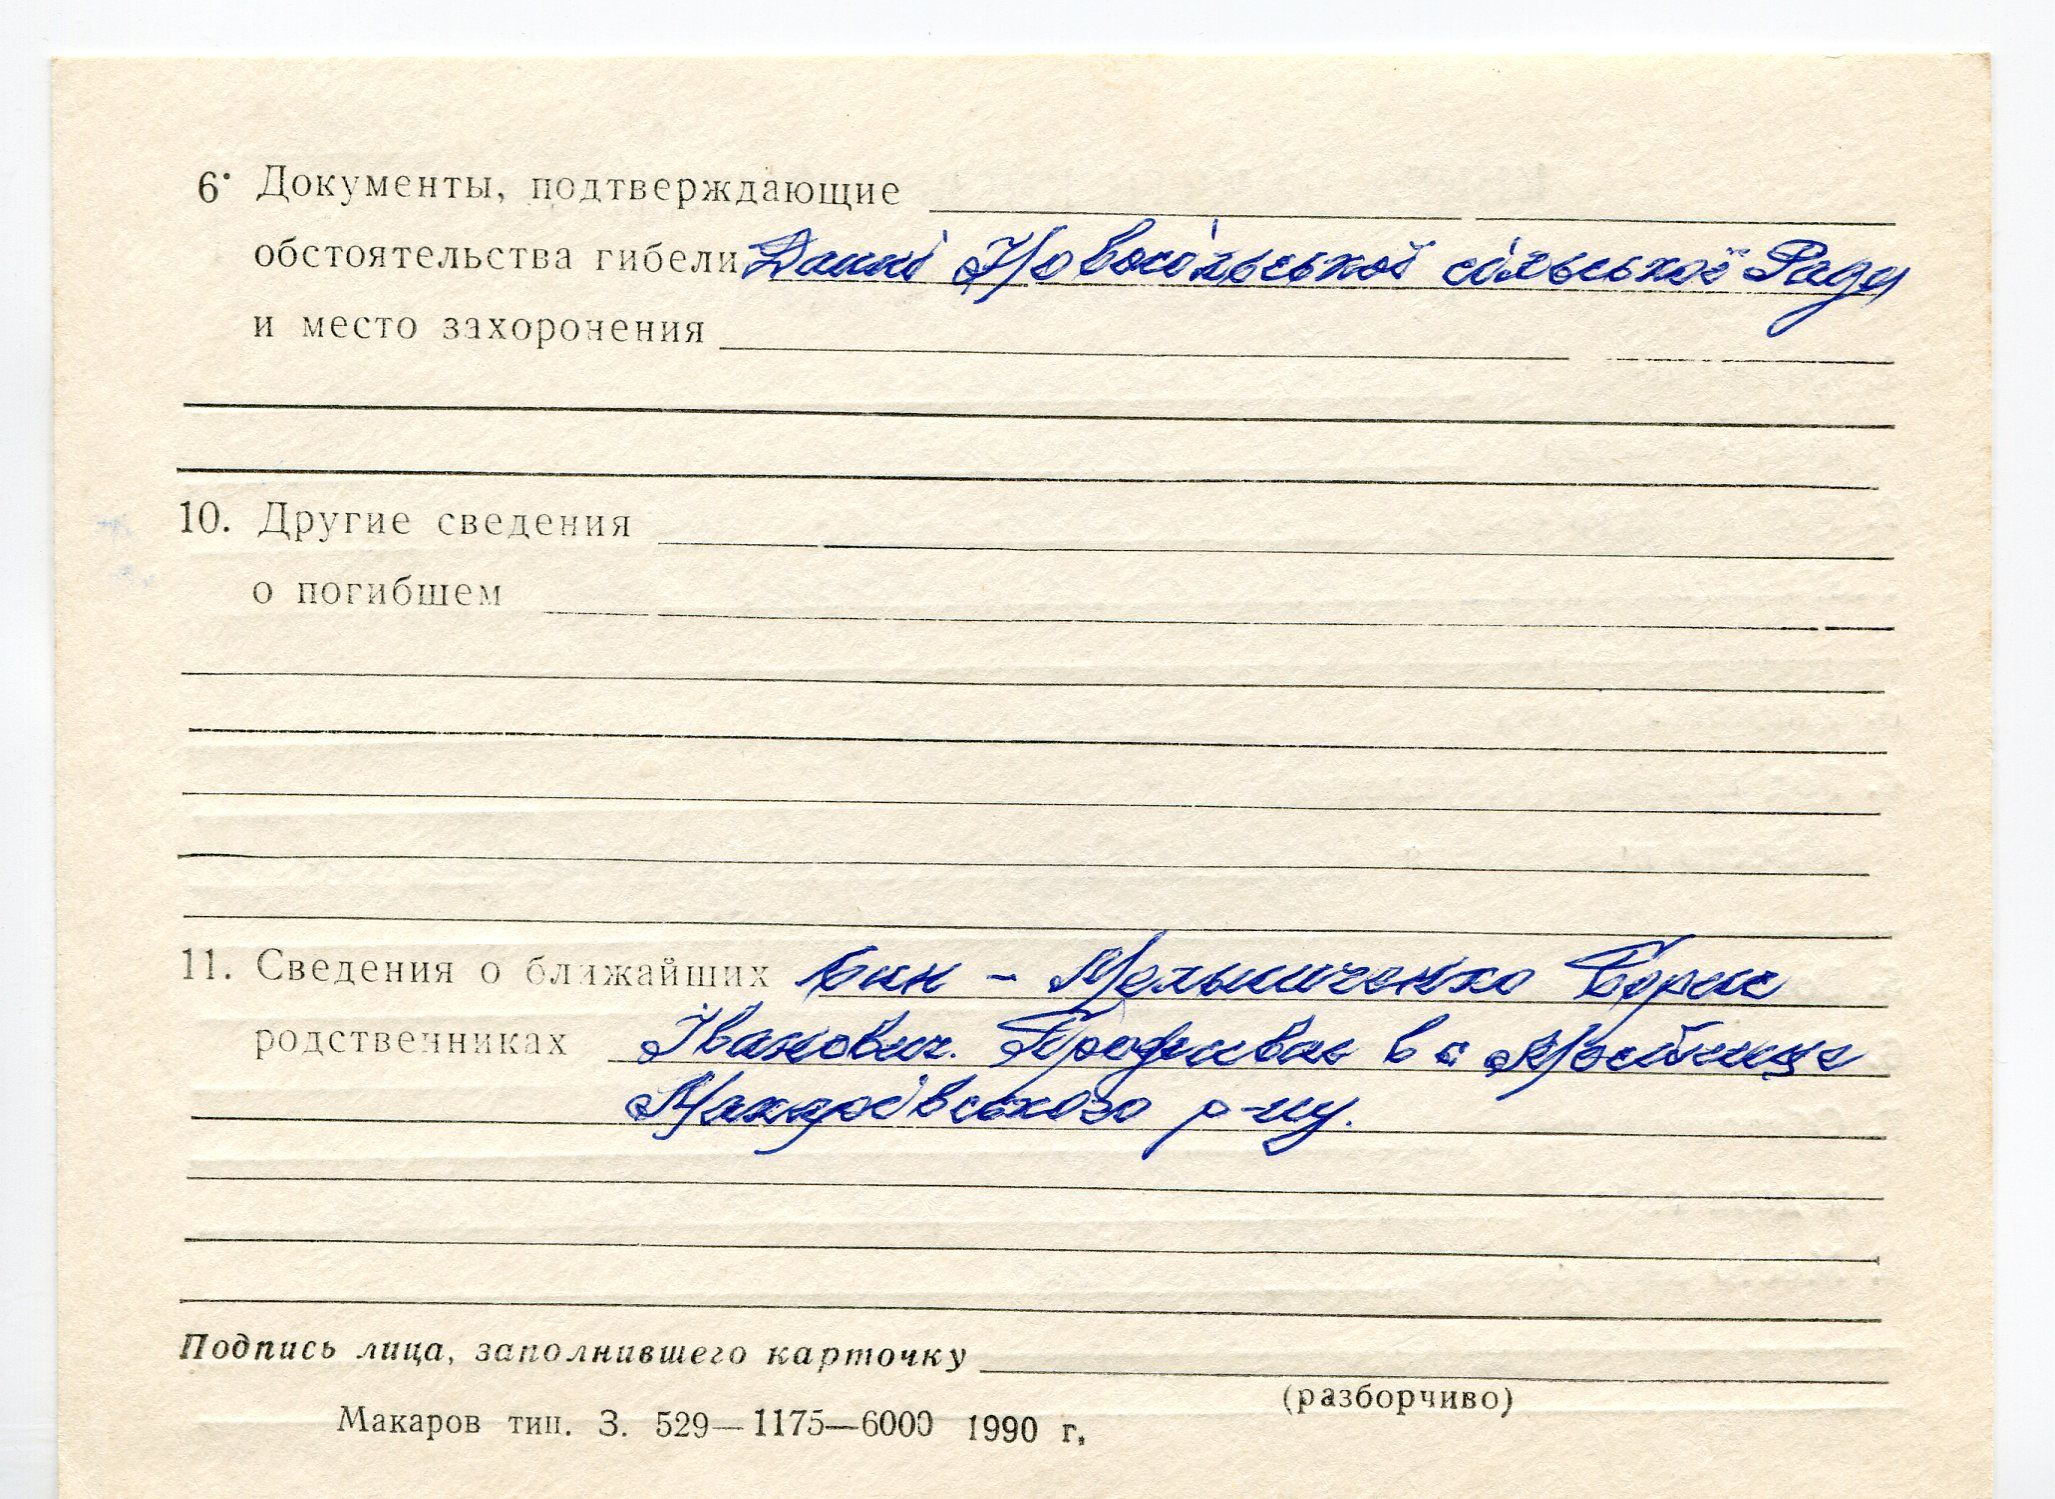 6. Документы, подтверждающие
обстоятельства гибели Данні Новосільської сільської Ради
и место захоронения
10. Другие сведения
о погибшем
11. Сведения о ближайших Син – Мельниченко Борис
родственниках Іванович. Проживає в с
Макарівського р-ну.
Подпись лица, заполнившего карточку
(разборчиво)
Макаров тип. З. 529—1175—6000 1990 г.